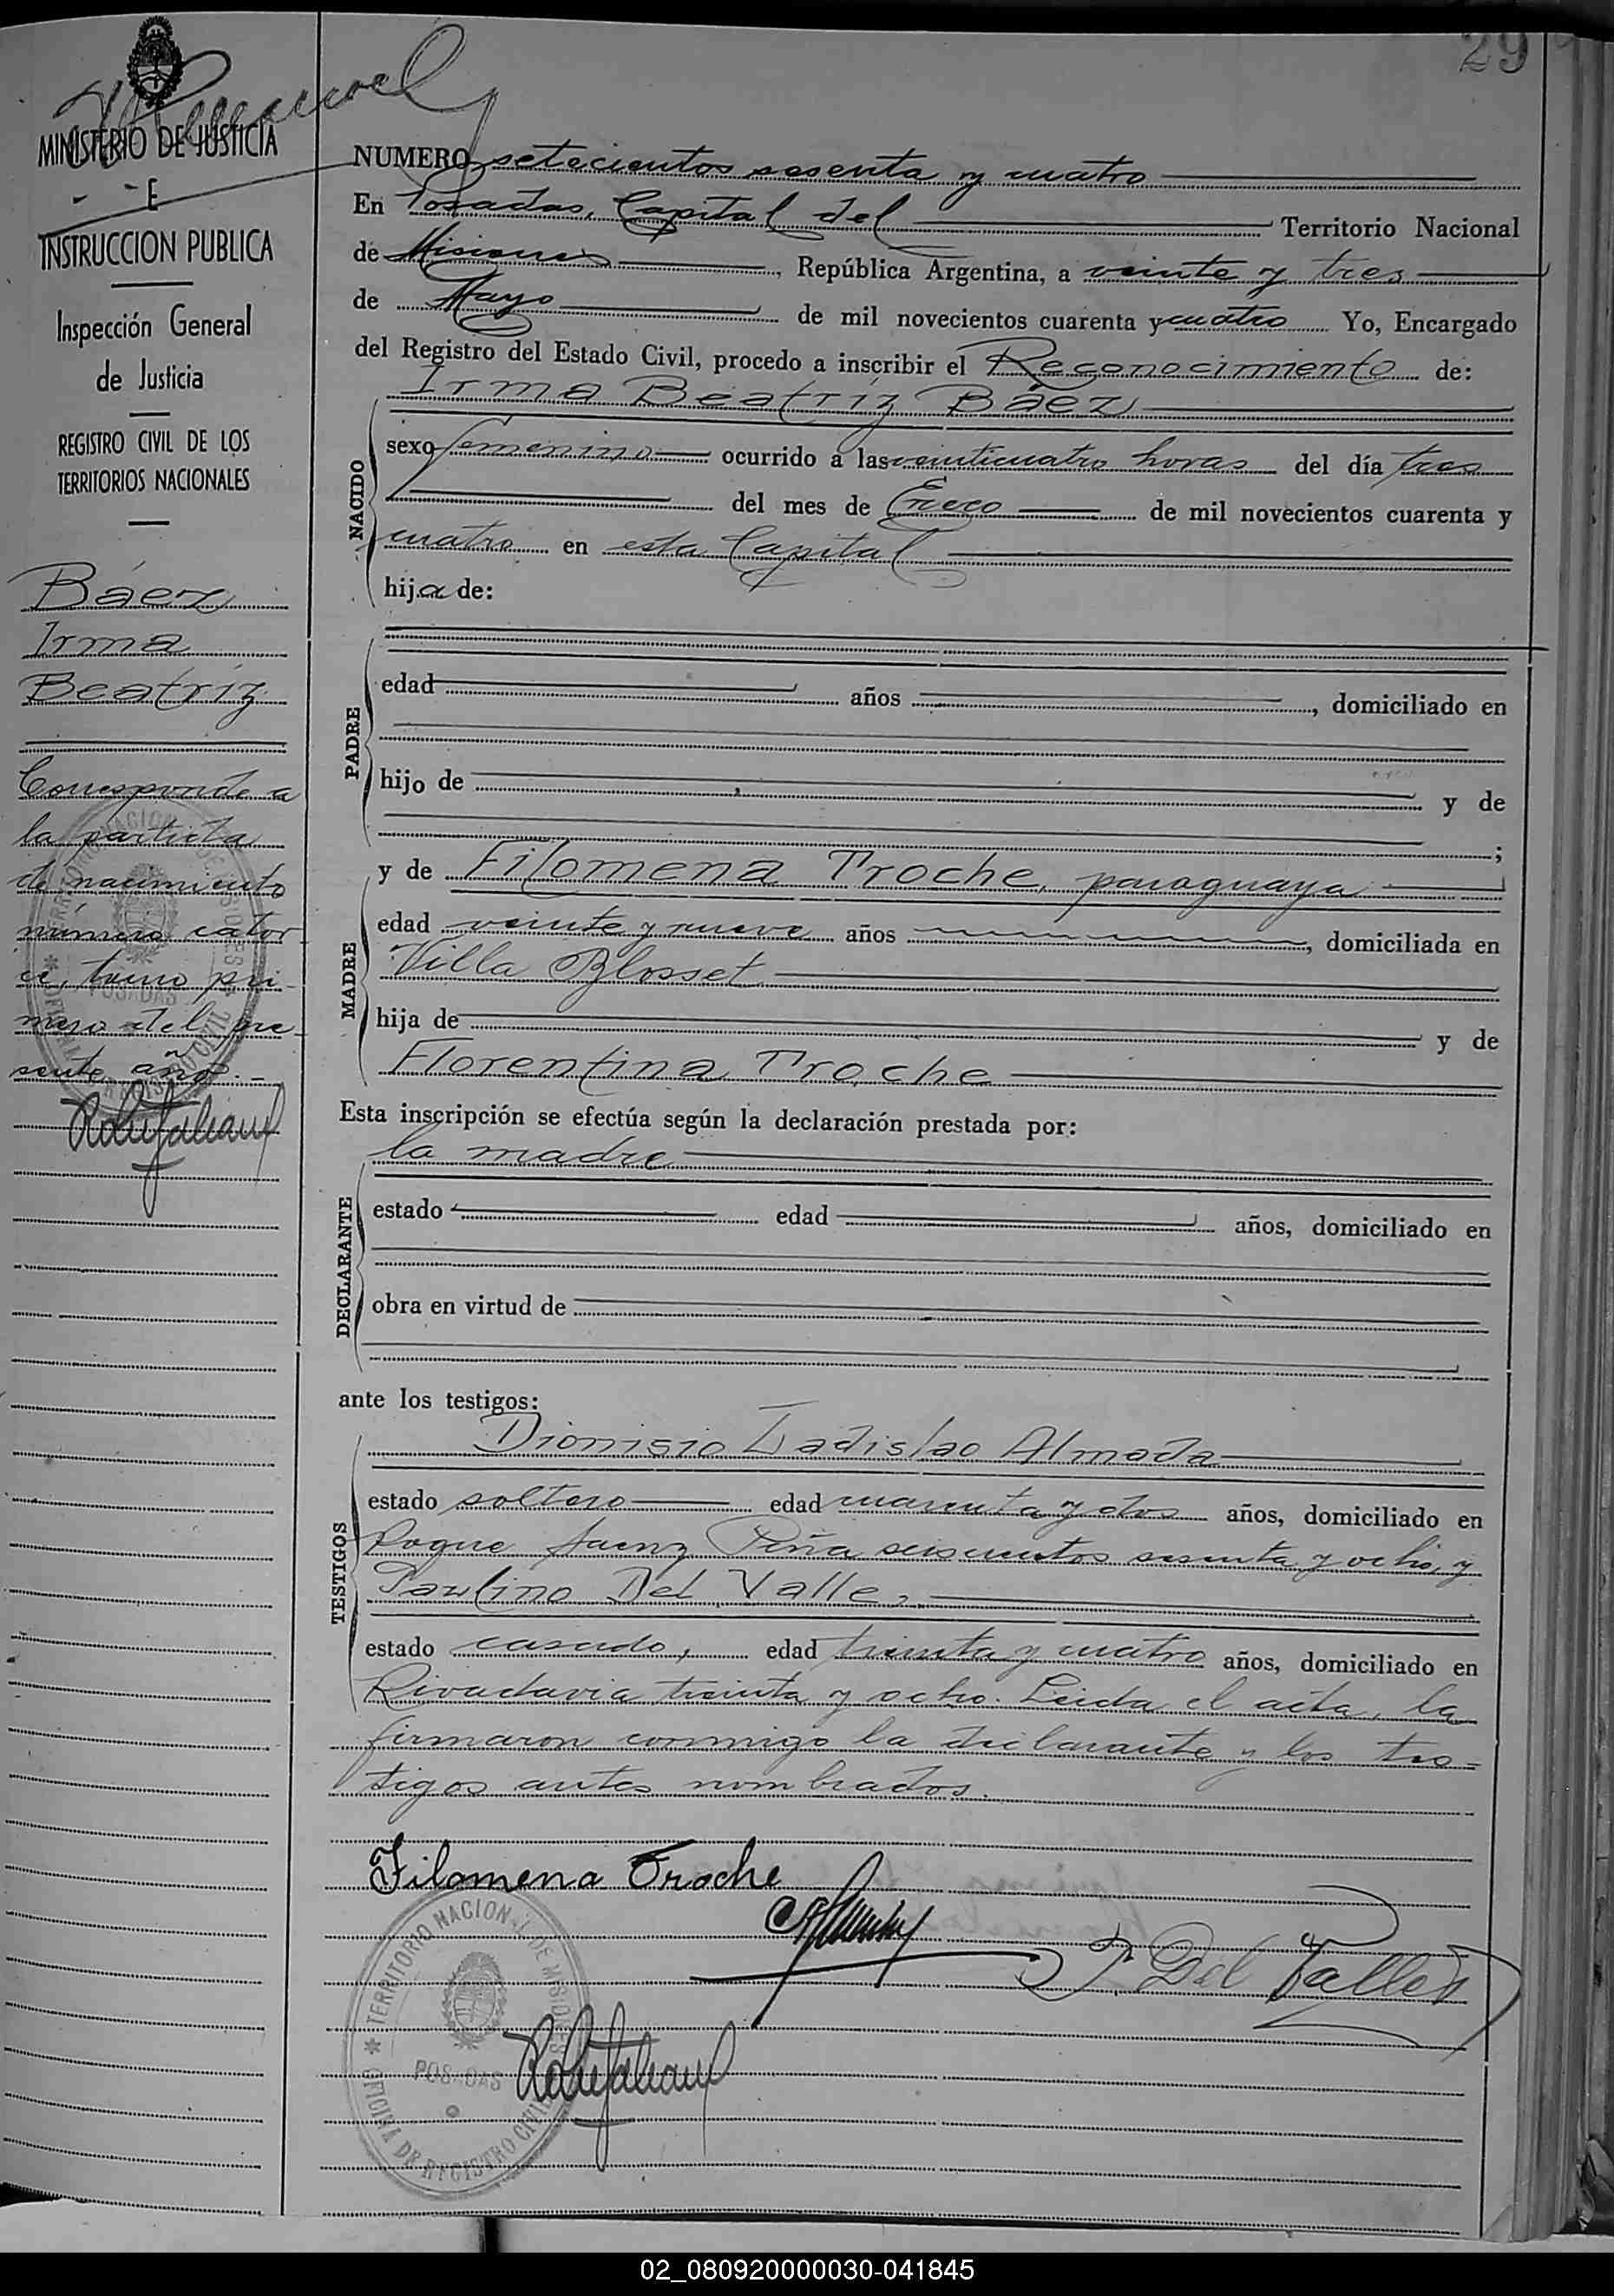 29
MINISTERIO DE JUSTICIA
E
INSTRUCCION PUBLICA
Inspección General
de Justicia
REGISTRO CIVIL DE LOS
TERRITORIOS NACIONALES
Báez
Irma
Beatríz
Corresponde a
la partida
de nacimiento
número cator-
ce, tomo pri-
mero del pre-
sente año.-
NUMERO setecientos sesenta y cuatro
En Posadas, Capital del Territorio Nacional
de Misiones, República Argentina, a veinte y tres
de Mayo de mil novecientos cuarenta y cuatro Yo, Encargado
del Registro del Estado Civil, procedo a inscribir el Reconocimiento de:
Irma Beatríz Báez
NACIDO
sexo femenino ocurrido a las veinticuatro horas del día tres
del mes de Enero de mil novecientos cuarenta y
cuatro en esta Capital
hija de:
PADRE
edad años , domiciliado en
hijo de y de
;
MADRE
y de Filomena Troche, paraguaya
edad veinte y nueve años , domiciliada en
Villa Blosset
hija de y de
Florentina Troche
Esta inscripción se efectúa según la declaración prestada por:
la madre
DECLARANTE
estado edad años, domiciliado en
obra en virtud de
ante los testigos:
TESTIGOS
Dionisio Ladislao Almada
estado soltero edad cuarenta y dos años, domiciliado en
Roque Saenz Peña seiscientos sesenta y ocho, y
Paulino Del Valle,
estado casado, edad treinta y cuatro años, domiciliado en
Rivadavia treinta y ocho. Leida el acta, la
firmaron conmigo la declarante y los tes-
tigos antes nombrados.
Filomena Troche
P. Del Valle
TERRITORIO NACIONAL DE MISIONES
POSADAS
OFICINA DE REGISTRO CIVIL
02_080920000030-041845